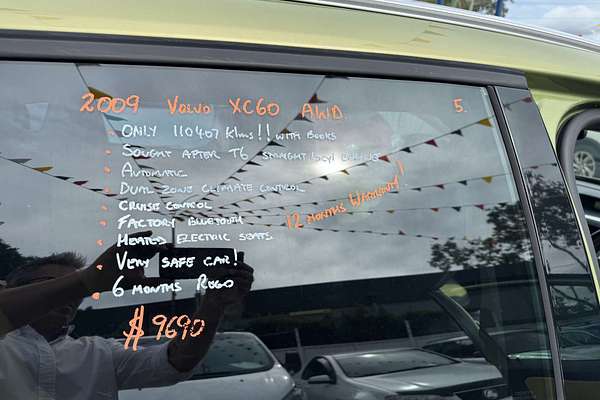 2009 Volvo XC60 AWD. 5.
• ONLY 110407 Klms!! WITH BOOKS
• SOUGHT AFTER T6 STRAIGHT 6CYL ENGINE
• AUTOMATIC
• DUAL ZONE CLIMATE CONTROL
• CRUISE CONTROL
• FACTORY BLUETOOTH
12 MONTHS WARRANTY!
• HEATED ELECTRIC SEATS
• VERY SAFE CAR!
• 6 MONTHS REGO
$9690